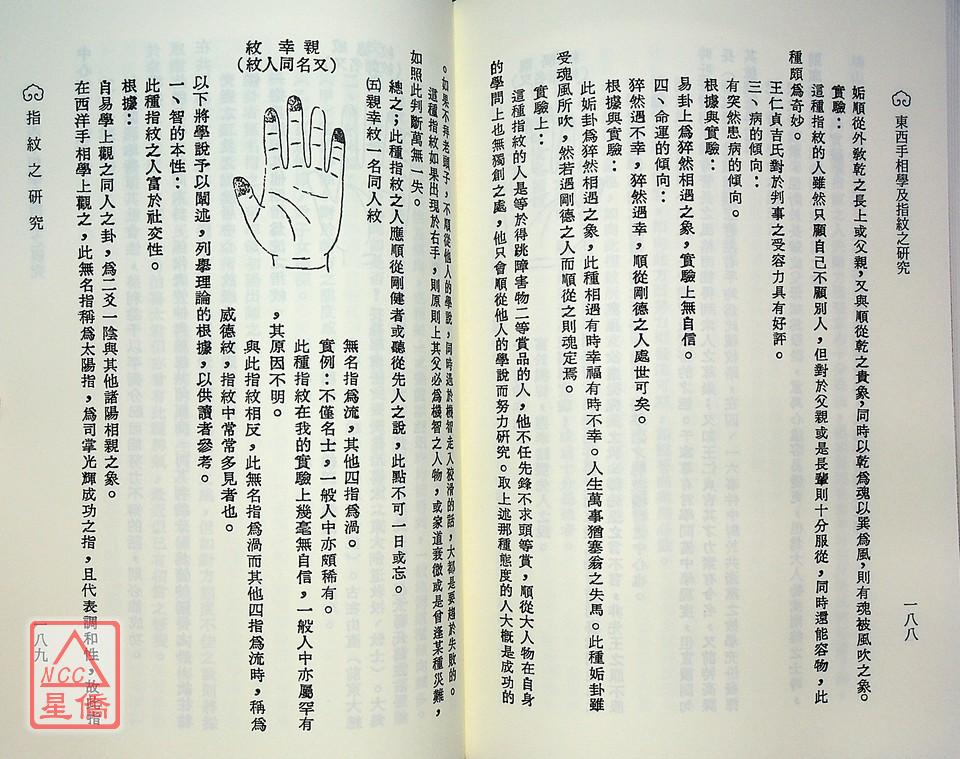 東西手相學及指紋之研究
一八八
姤順從外敎乾之長上或父親，又與順從乾之貴象，同時以乾爲魂以巽爲風，則有魂被風吹之象。
實驗：
這種指紋的人雖然只顧自己不顧別人，但對於父親或是長輩則十分服從，同時還能容物，此
種頗爲奇妙。
王仁貞吉氏對於判事之受容力具有好評。
三、病的傾向：
有突然患病的傾向。
根據與實驗：
易卦上爲猝然相遇之象，實驗上無自信。
四、命運的傾向：
猝然遇不幸，猝然遇幸，順從剛德之人處世可矣。
根據與實驗：
此姤卦爲猝然相遇之象，此種相遇有時幸福有時不幸。人生萬事猶塞翁之失馬。此種姤卦雖
受魂風所吹，然若遇剛德之人而順從之則魂定焉。
實驗上：
這種指紋的人是等於得跳障害物二等賞品的人，他不任先鋒不求頭等賞，順從大人物在自身
的學問上也無獨創之處，他只會順從他人的學說而努力研究。取上述那種態度的人大槪是成功的
。如果不拜老頭子，不順從他人的學說，同時過於機智走入狡滑的話，大都是要趨於失敗的。
這種指紋如果出現於右手，則原則上其父必爲機智之人物，或家道衰微或是曾逢某種災難，
如照此判斷萬無一失。
總之；此種指紋之人應順從剛健者或聽從先人之說，此點不可一日或忘。
㈤親幸紋一名同人紋
親幸紋
（又名同人紋）
無名指爲流，其他四指爲渦。
實例：不僅名士，一般人中亦頗稀有。
此種指紋在我的實驗上幾毫無自信，一般人中亦屬罕有
，其原因不明。
與此指紋相反，此無名指爲渦而其他四指爲流時，稱爲
威德紋，指紋中常常多見者也。
以下將學說予以闡述，列擧理論的根據，以供讀者參考。
一、智的本性：
此種指紋之人富於社交性。
根據：
自易學上觀之同人之卦，爲二爻一陰與其他諸陽相親之象。
在西洋手相學上觀之，此無名指稱爲太陽指，爲司掌光輝成功之指，且代表調和性，故此指
指紋之硏究
一八九
NCC
星僑